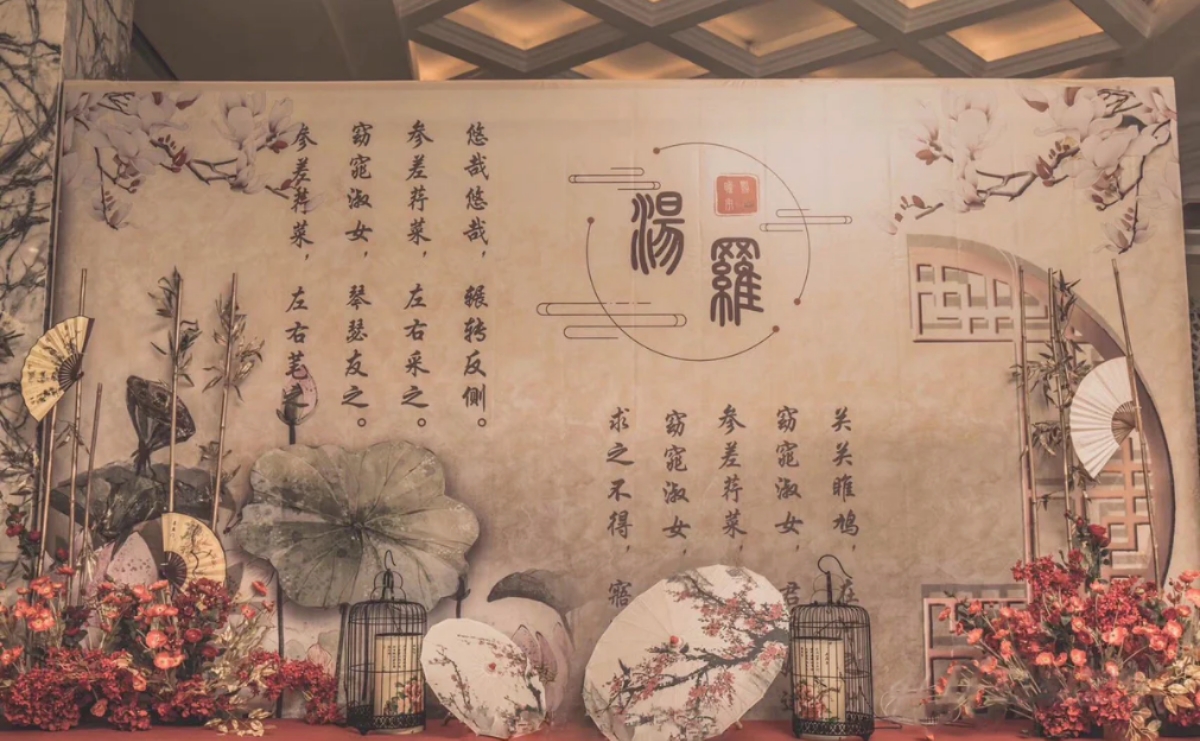 湯
羅
关关雎鸠，在
窈窕淑女，君
参差荇菜，
窈窕淑女，
求之不得，寤
悠哉悠哉，辗转反侧。
参差荇菜，左右采之。
窈窕淑女，琴瑟友之。
参差荇菜，左右芼之